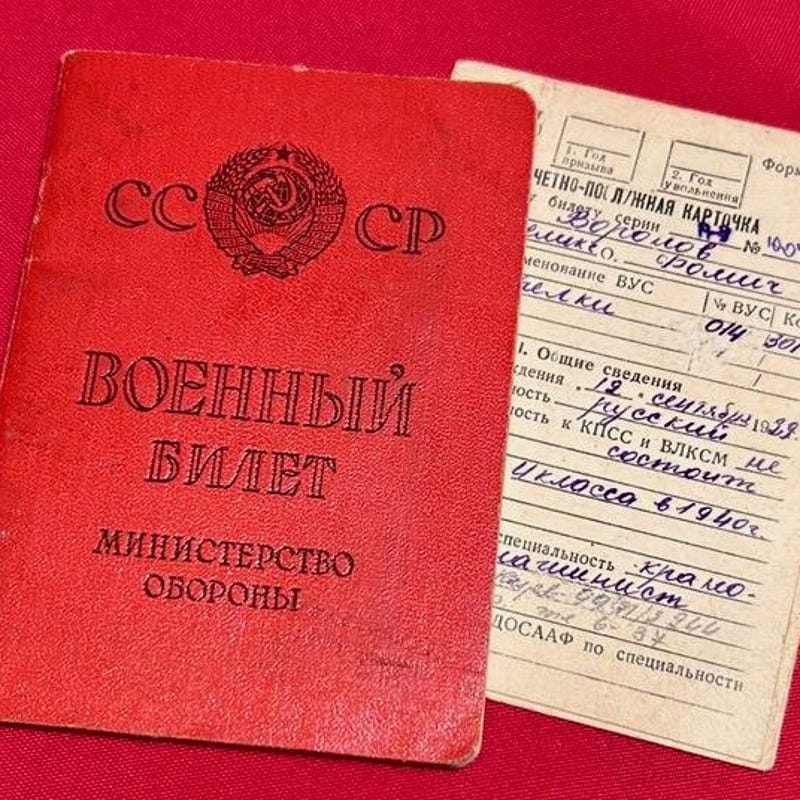 СССР
ВОЕННЫЙ
БИЛЕТ
МИНИСТЕРСТВО
ОБОРОНЫ
1. Год
призыва
2. Год
увольнения
Форм
ЧЕТНО-ПОСЛУЖНАЯ КАРТОЧКА
билету серии №
еликс О. Фомич
менование ВУС
елки
№ ВУС
014
I. Общие сведения
дения 12 сентября 19
ность русский
ность к КПСС и ВЛКСМ не
состоит
4 класса в 1940г.
специальность крано-
машинист
ДОСААФ по специальности